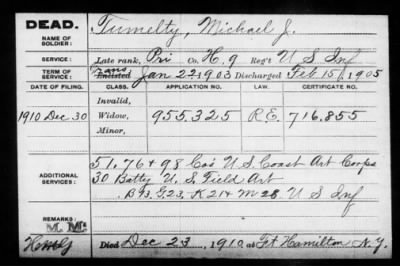 DEAD.
NAME OF SOLDIER: Tumelty, Michael J.
SERVICE: Late rank, Pri Co. H, 9 Reg't U S Inf
TERM OF SERVICE: Trans Enlisted Jan 22 1903 Discharged Feb 15, 1905
DATE OF FILING. CLASS. APPLICATION NO. LAW. CERTIFICATE NO.
Invalid,
1910 Dec 30 Widow, 955,325 R.E. 716,855
Minor,
ADDITIONAL SERVICES: 51, 76 & 98 Co's U S Coast Art Corps
30 Batty U. S. Field Art
B 13, G 23, K 21 & M 28 U S Inf
REMARKS:
M. Mc
Died Dec 23, 1910 at Ft. Hamilton N.Y.